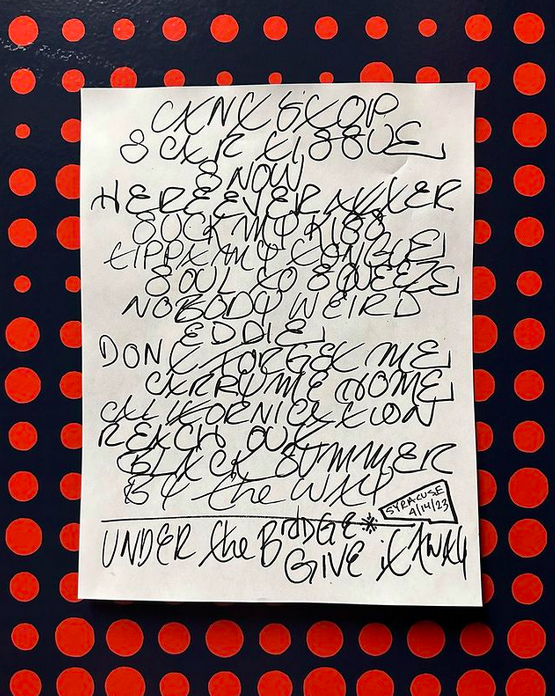 CANT STOP
SCAR TISSUE
SNOW
HERE EVER AFTER
SUCK MY KISS
TIPPA MY TONGUE
SOUL TO SQUEEZE
NOBODY WEIRD
EDDIE
DONT FORGET ME
CARRY ME HOME
CALIFORNICATION
REACH OUT
BLACK SUMMER
BY the WAY
SYRACUSE
4/14/23
UNDER the BridGE *
GIVE it AWAY